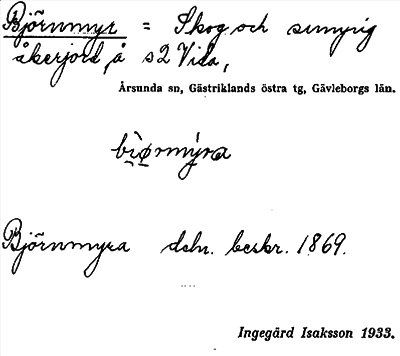 Björnmyr = Skog och sumpig
åkerjord, å s2 Vida,
Årsunda sn, Gästriklands östra tg, Gävleborgs län.
Björnmyra dsbn. beskr. 1869.
Ingegärd Isaksson 1933.